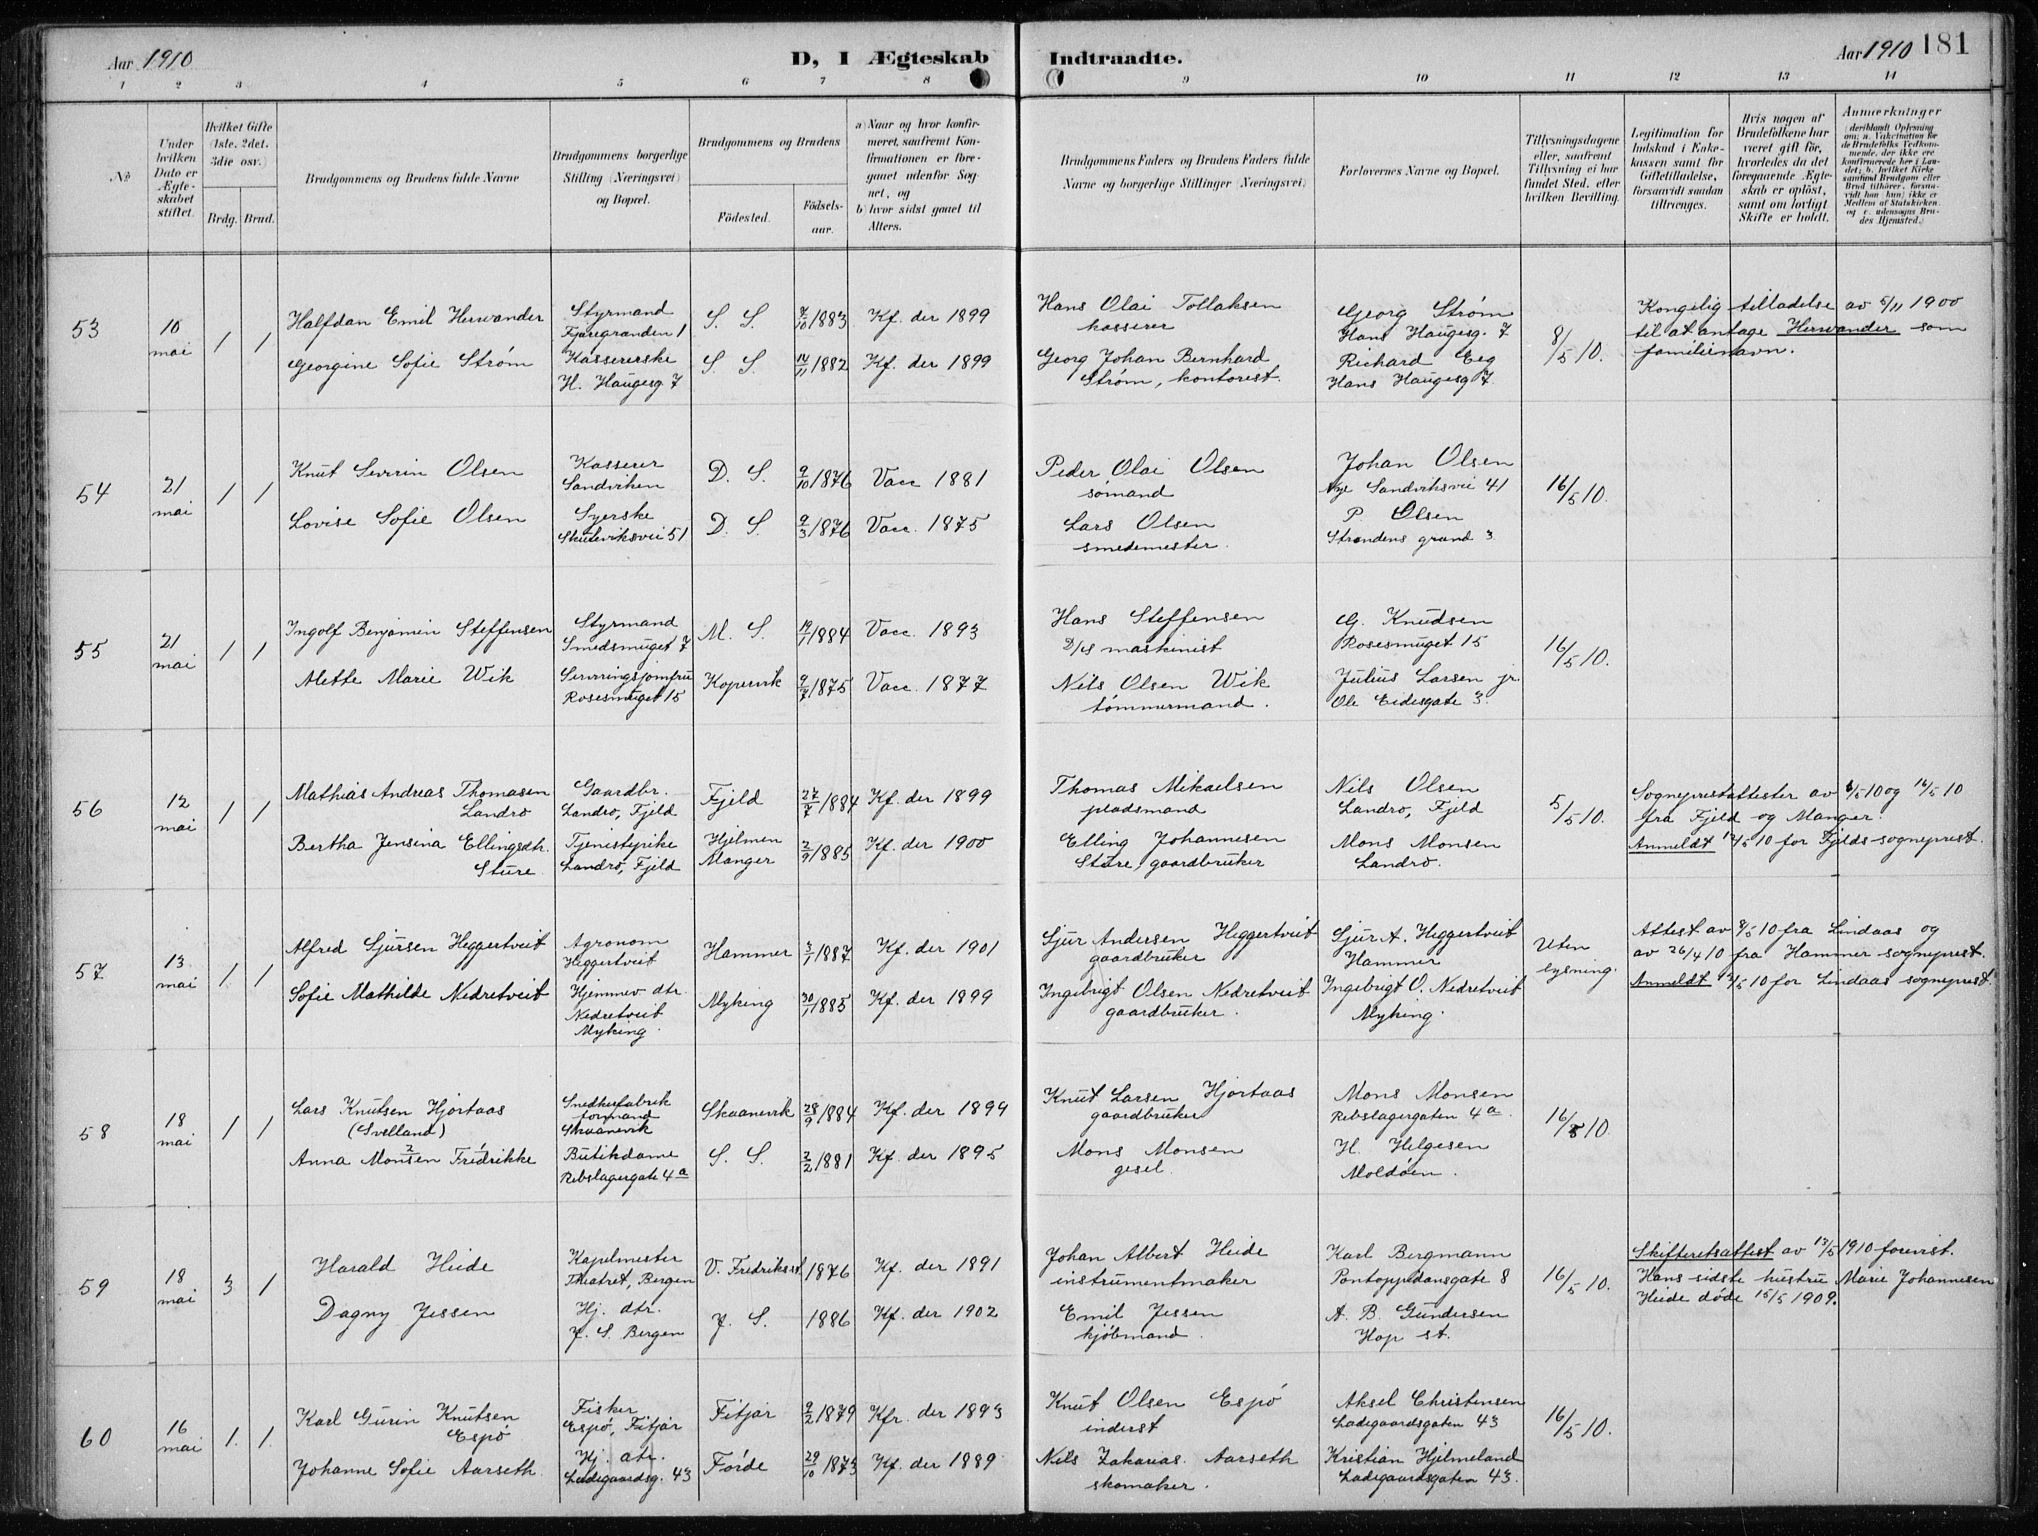 Aar 1910
D, I Ægteskab
Indtraadte.
Aar 1910 181
1 2 3 4 5 6 7 8 9 10 11 12 13 14
№
Under hvilken Dato er Ægteskabet stiftet.
Hvilket Gifte (1ste, 2det, 3die osv.)
Brdg. Brud.
Brudgommens og Brudens fulde Navne
Brudgommens borgerlige Stilling (Næringsvei) og Bopæl.
Brudgommens og Brudens
Fødested.
Fødsels-aar.
a) Naar og hvor konfirmeret, saafremt Konfirmationen er foregaaet udenfor Sognet, og
b) hvor sidst gaaet til Alters.
Brudgommens Faders og Brudens Faders fulde Navne og borgerlige Stillinger (Næringsvei)
Forlovernes Navne og Bopæl.
Tillysningsdagene eller, saafremt Tillysning ei har fundet Sted, efter hvilken Bevilling.
Legitimation for Indskud i Enkekassen samt for Giftetilladelse, forsaavidt saadan tiltrænges.
Hvis nogen af Brudefolkene har været gift før, hvorledes da det foregaaende Ægteskab er opløst, samt om lovligt Skifte er holdt.
Anmærkninger
53
10 mai
1 1
Halfdan Emil Herwander
Styrmand
Fjæregranden 1
S. S. 7/10 1883 Kf. der 1899
Georgine Sofie Strøm
Kassererske
H. Haugesg. 7
S. S. 14/11 1882 Kf. der 1899
Hans Olai Tollaksen
kasserer
Georg Johan Bernhard
Strøm, kontorist.
Georg Strøm
Hans Haugesg. 7
Richard Eeg
Hans Haugesg. 7
8/5 10.
Kongelig tilladelse av 5/11 1900
til at antage Herwander som
familienavn.
54
21 mai
1 1
Knut Severin Olsen
Kasserer
Sandviken
D. S. 9/10 1876 Vacc 1881
Lovise Sofie Olsen
Syerske
Skuteviksvei 51
D. S. 9/3 1876 Vacc. 1875
Peder Olai Olsen
sømand
Lars Olsen
smedemester.
Johan Olsen
Nye Sandviksvei 41
P. Olsen
Strandens grand 3
16/5 10.
55
21 mai
1 1
Ingolf Benjamin Steffensen
Styrmand
Smedsmuget 7
M. S. 19/1 1884 Vacc. 1893
Mette Marie Wik
Serveringsjomfru
Rosesmuget 15
Kopervik 9/7 1875 Vacc. 1877
Hans Steffensen
D/S maskinist
Nils Olsen Wik
tømmermand.
G. Knudsen
Rosesmuget 15
Julius Larsen jr.
Ole Eidesgate 3.
16/5 10.
56
12 mai
1 1
Mathias Andreas Thomasen
Landro
Gaardbr.
Landro, Fjeld
Fjeld 27/7 1884 Kf. der 1899
Bertha Jensina Ellingsdtr.
Sture
Tjenestepike
Landro, Fjeld
Hjelmen
Manger 2/9 1885 Kf. der 1900
Thomas Mikaelsen
pladsmand
Elling Johannesen
Sture, gaardbruker
Nils Olsen
Landro, Fjeld
Mons Monsen
Landro.
5/5 10.
Sogneprestattester av 6/5 10 og 12/5 10
fra Fjeld og Manger.
Anmeldt 12/5 10 for Fjelds sogneprest.
57
13 mai
1 1
Alfred Sjursen Heggertveit
Agronom
Heggertveit
Hammer 3/1 1887 Kf. der 1901
Sofie Mathilde Nedretveit
Hjemmev. dtr.
Nedretveit
Myking.
Myking 30/1 1885 Kf. der 1899
Sjur Andersen Heggertveit
gaardbruker
Ingebrigt Olsen Nedretveit
gaardbruker.
Sjur A. Heggertveit
Hammer
Ingebrigt O. Nedretveit
Myking.
Uten
lysning.
Attest av 8/5 10 fra Lindaas og
av 26/4 10 fra Hammer sogneprest.
Anmeldt 13/5 10 for Lindaas sogneprest.
58
18 mai
1 1
Lars Knutsen Hjortaas
(Svelland)
Snedkerfabrik
formand
Skaanevik
Skaanevik 28/9 1884 Kf. der 1899
Anna Monsen Fredrikke
Butikdame
Rebslagergate 4a
S. S. 2/2 1881 Kf. der 1895
Knut Larsen Hjortaas
gaardbruker
Mons Monsen
gesel.
Mons Monsen
Rebslagergaten 4a.
H. Helgesen
Moldöen.
16/5 10
59
18 mai
3 1
Harald Heide
Kapelmester
Theatret, Bergen
V. Fredrikst 1876 Kf. der 1891
Dagny Jessen
Hj. dtr.
J. S. Bergen
J. S. 1886 Kf. der 1902
Johan Albert Heide
instrumentmaker
Emil Jessen
kjøbmand.
Karl Bergmann
Pontoppidansgate 8
A. B. Gundersen
Hop st.
16/5 10.
Skifteretsattest av 13/5 1910 forevist.
Hans sidste hustru Marie Johannesen
Heide døde 15/5 1909.
60
16 mai
1. 1.
Karl Gurin Knutsen
Espö
Fisker
Espö, Fitjar
Fitjar 9/2 1879 Kfr. der 1893
Johanne Sofie Aarseth
Hj. dtr.
Ladegaardsg. 43
Førde 29/10 1873 Kf. der 1889
Knut Olsen Espö
inderst
Nils Zakarias Aarseth
skomaker.
Aksel Christensen
Ladegaardsgaten 43
Kristian Hjelmeland
Ladegaardsgaten 43.
16/5 10.